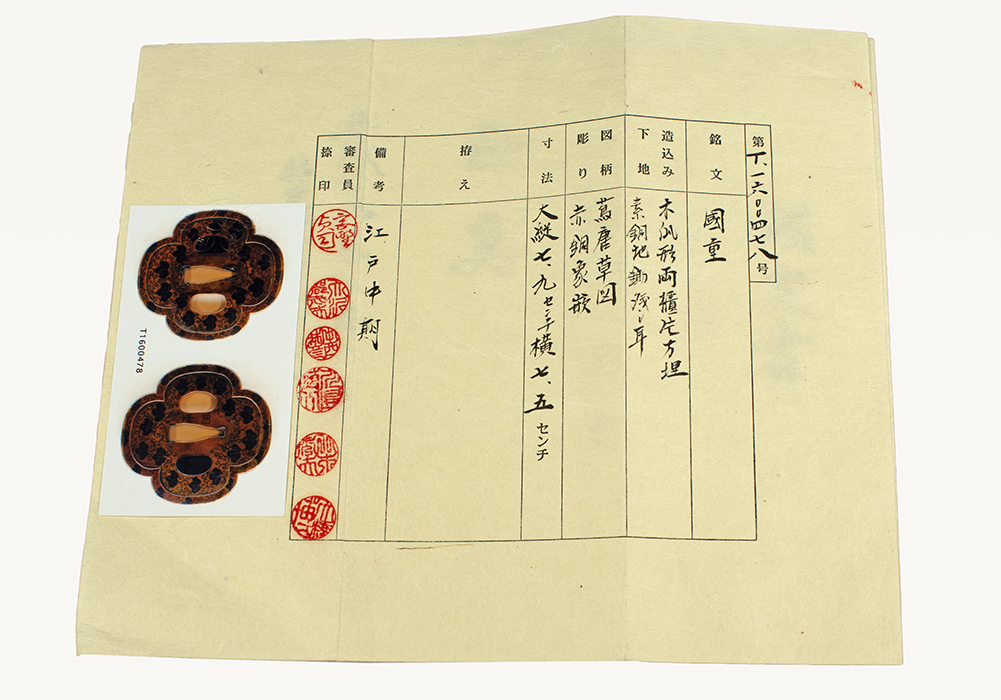 第T、一六〇〇四七八号
銘文
國重
造込み
下地
木瓜形両櫃片方埋
素銅地鋤残シ耳
図柄
彫り
蔦唐草図
赤銅象嵌
寸法
大縦七、九センチ横七、五センチ
拵え
備考
江戸中期
審査員
捺印
T1600478